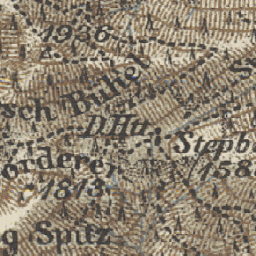 1936
sch Bühel
D.Hü.
Stepb
orderer
(158
1813
g Spitz